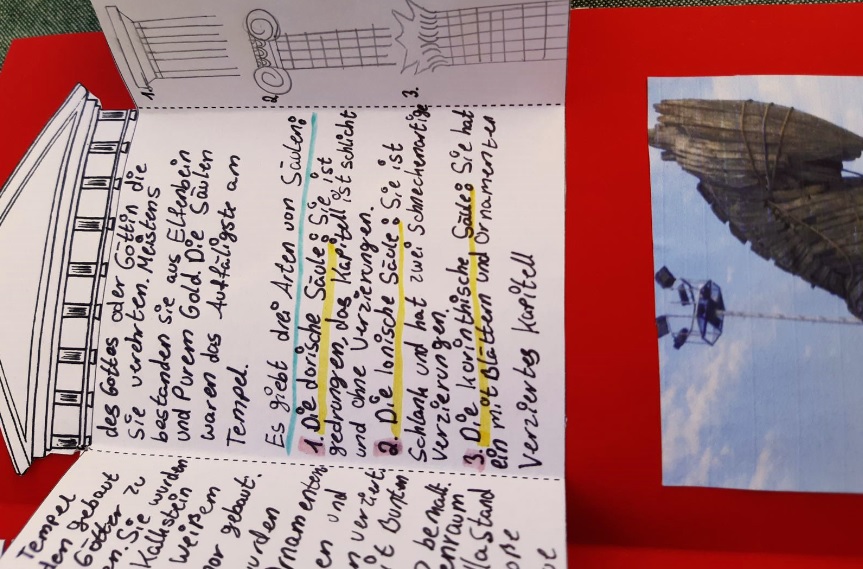 des Gottes oder Göttin die
sie verehrten. Meistens
bestanden sie aus Elfenbein
und Purem Gold. Die Säulen
waren das Auffäligste am
Tempel.
Es giebt drei Arten von Säulen:
1. Die dorische Säule: Sie ist
gedrungen, das Kapitell ist schlicht
und ohne Verzierungen.
2. Die Ionische Säule: Sie ist
Schlank und hat zwei Schneckenartige
verzierungen.
3. Die korinthische Säule: Sie hat
ein mit Blättern und Ornamenten
Verziertes Kapitell
1.
2.
3.
Tempel
den gebaut
Götter zu
en. Sie wurden
Kalkstein
weißem
or gebaut.
urden
rnamenten
en und
n verziert
it Bunten
bemalt.
enraum